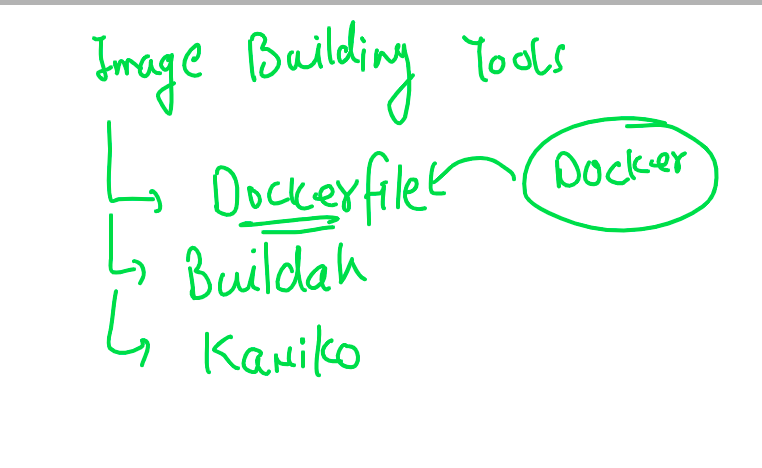 Image Building Tools
Dockerfile
Docker
Buildah
Kaniko